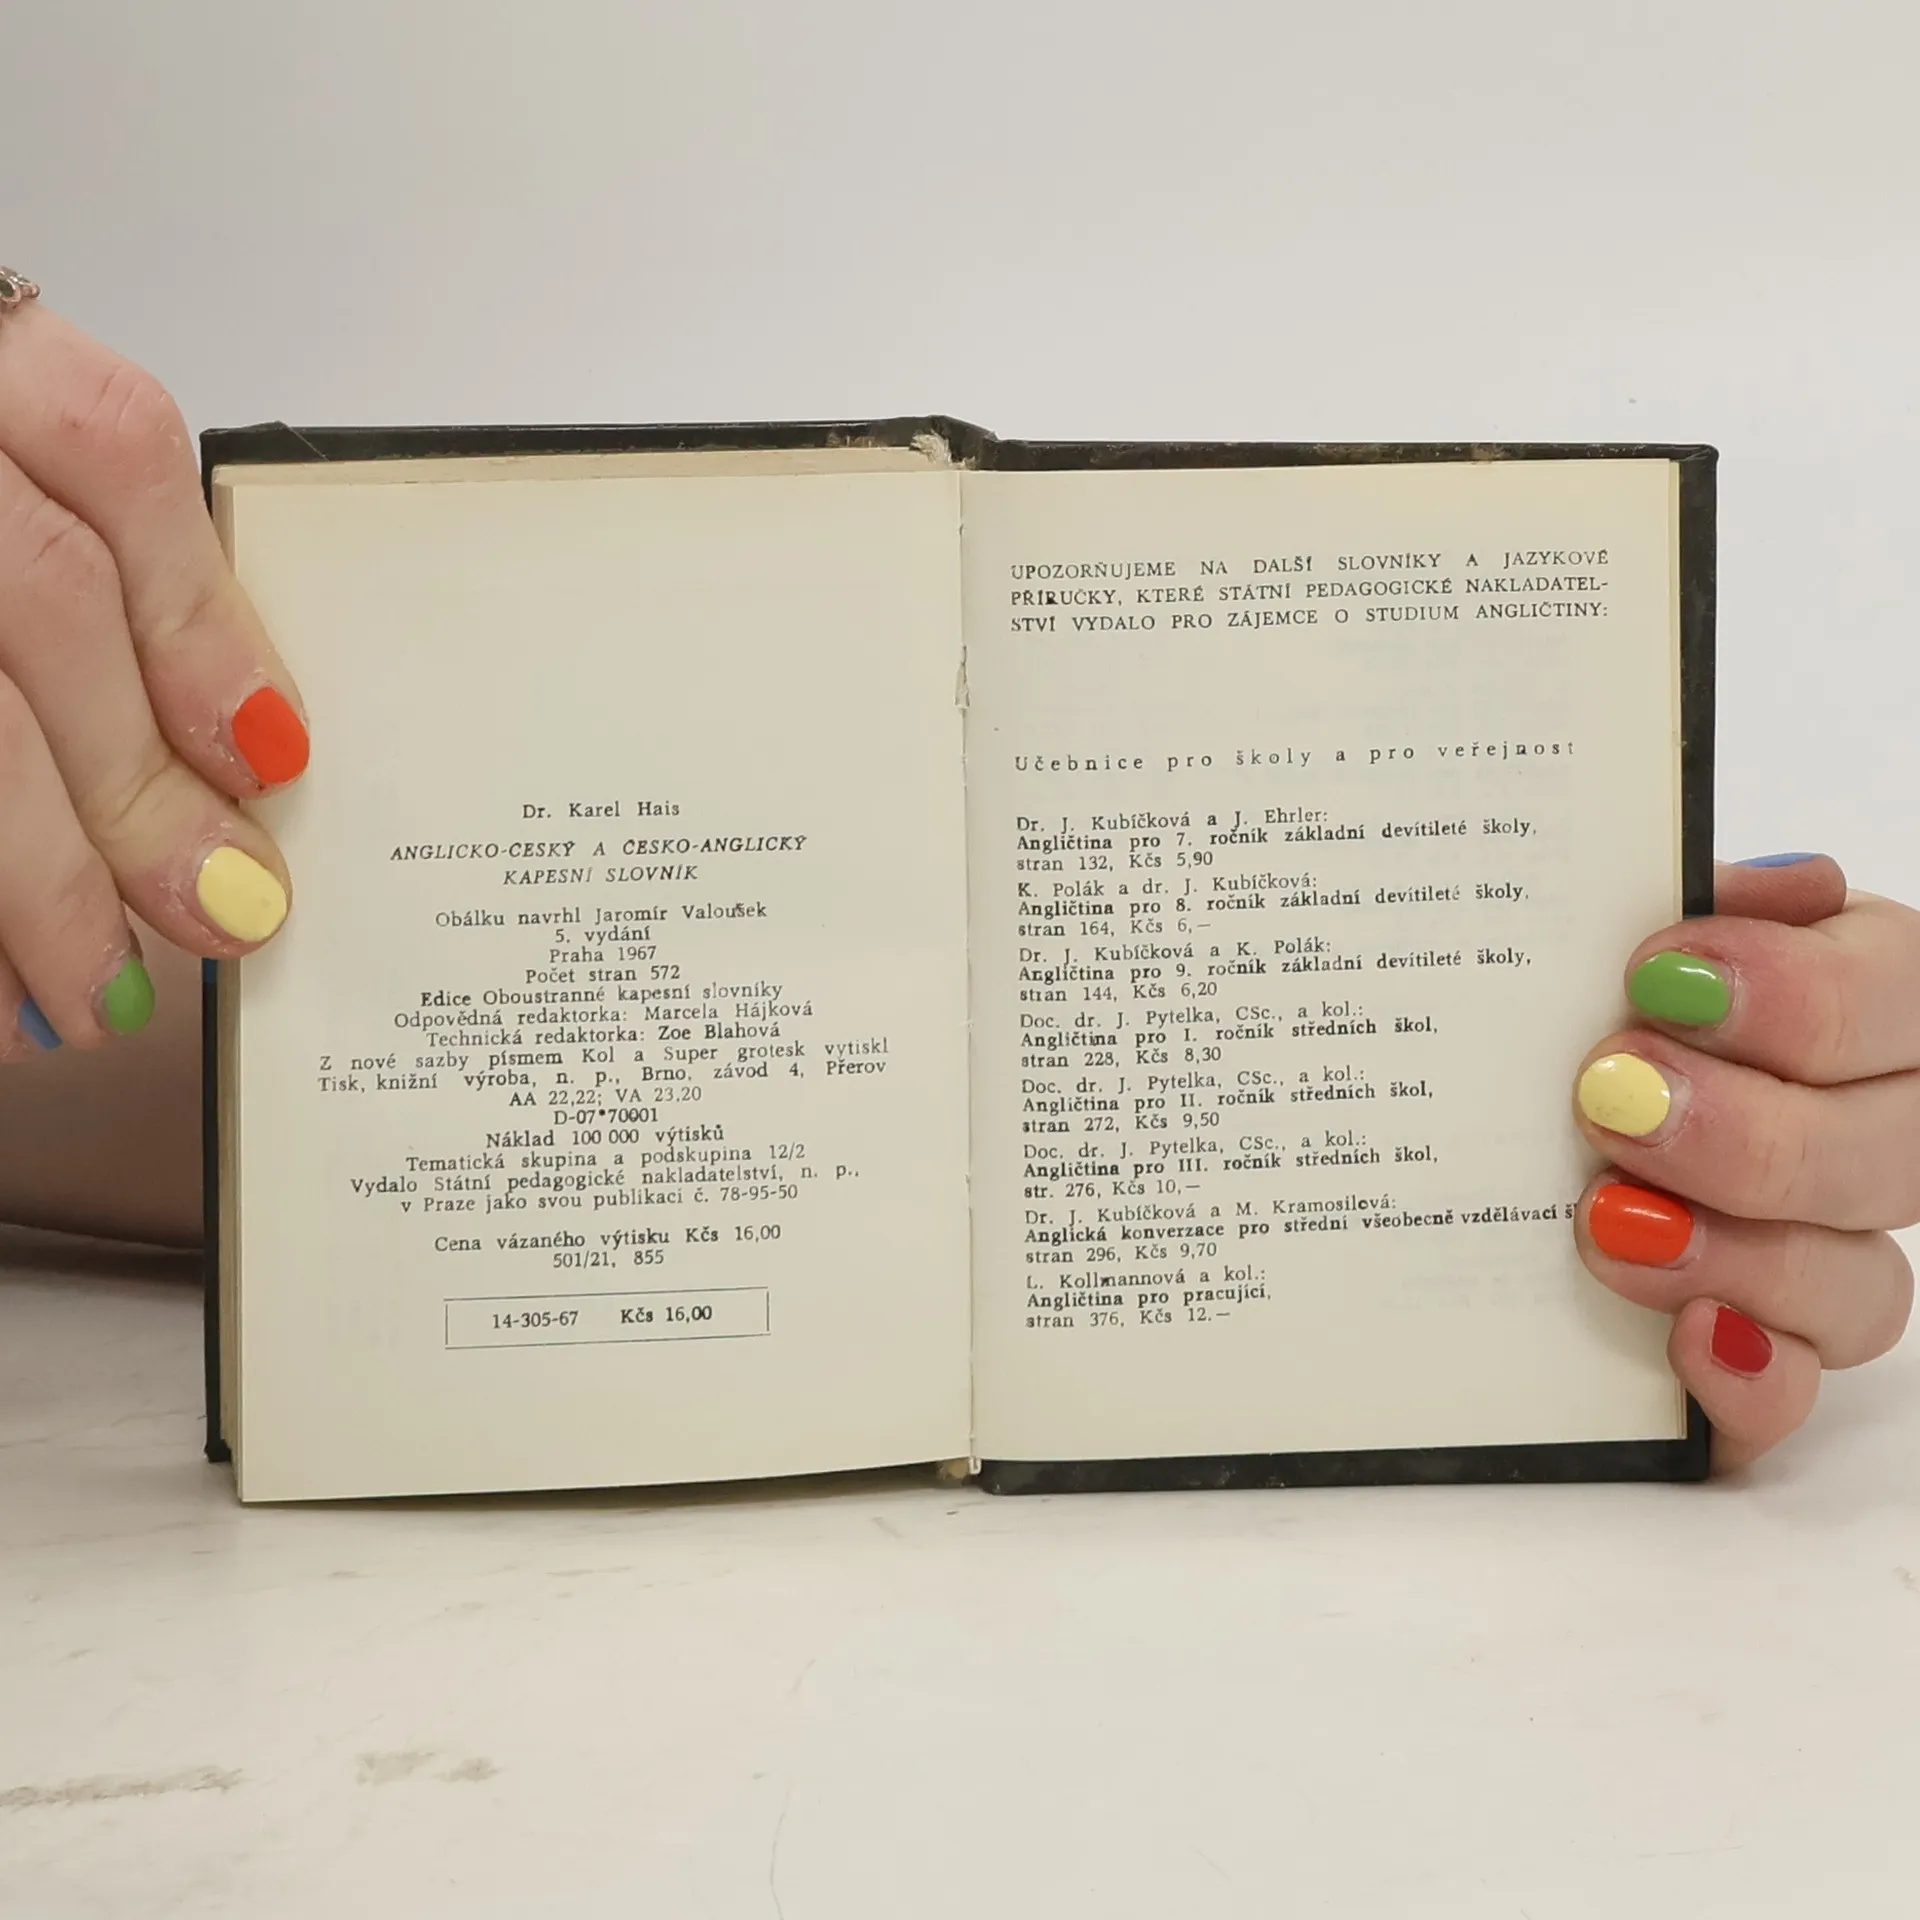 Dr. Karel Hais
ANGLICKO-ČESKÝ A ČESKO-ANGLICKÝ
KAPESNÍ SLOVNÍK
Obálku navrhl Jaromír Valoušek
5. vydání
Praha 1967
Počet stran 572
Edice Oboustranné kapesní slovníky
Odpovědná redaktorka: Marcela Hájková
Technická redaktorka: Zoe Blahová
Z nové sazby písmem Kol a Super grotesk vytiskl
Tisk, knižní výroba, n. p., Brno, závod 4, Přerov
AA 22,22; VA 23,20
D-07*70001
Náklad 100 000 výtisků
Tematická skupina a podskupina 12/2
Vydalo Státní pedagogické nakladatelství, n. p.,
v Praze jako svou publikaci č. 78-95-50
Cena vázaného výtisku Kčs 16,00
501/21, 855
14-305-67 Kčs 16,00
UPOZORŇUJEME NA DALŠÍ SLOVNÍKY A JAZYKOVÉ
PŘÍRUČKY, KTERÉ STÁTNÍ PEDAGOGICKÉ NAKLADATEL-
STVÍ VYDALO PRO ZÁJEMCE O STUDIUM ANGLIČTINY:
Učebnice pro školy a pro veřejnost
Dr. J. Kubíčková a J. Ehrler:
Angličtina pro 7. ročník základní devítileté školy,
stran 132, Kčs 5,90
K. Polák a dr. J. Kubíčková:
Angličtina pro 8. ročník základní devítileté školy,
stran 164, Kčs 6,—
Dr. J. Kubíčková a K. Polák:
Angličtina pro 9. ročník základní devítileté školy,
stran 144, Kčs 6,20
Doc. dr. J. Pytelka, CSc., a kol.:
Angličtina pro I. ročník středních škol,
stran 228, Kčs 8,30
Doc. dr. J. Pytelka, CSc., a kol.:
Angličtina pro II. ročník středních škol,
stran 272, Kčs 9,50
Doc. dr. J. Pytelka, CSc., a kol.:
Angličtina pro III. ročník středních škol,
str. 276, Kčs 10,—
Dr. J. Kubíčková a M. Kramosilová:
Anglická konverzace pro střední všeobecně vzdělávací
stran 296, Kčs 9,70
L. Kollmannová a kol.:
Angličtina pro pracující,
stran 376, Kčs 12.—